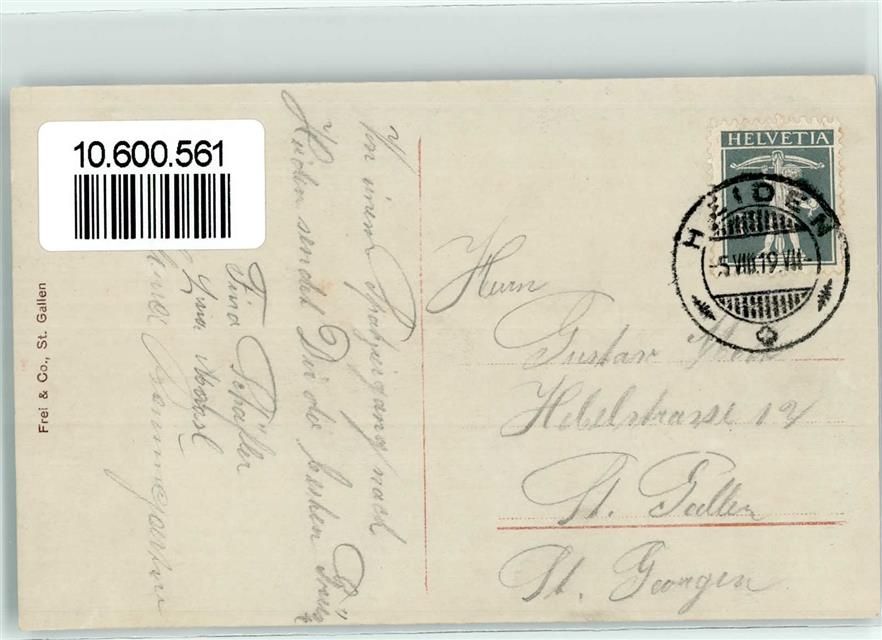 10.600.561
Frei & Co., St. Gallen
Von einem Spaziergang nach
Heiden sendet Dir die besten Grüsse
Fina Schäfler
Lina
HELVETIA
HEIDEN
-5.VIII.19.VII-
Herrn
Gustav
Hebelstrasse 12
St. Gallen
St. Georgen